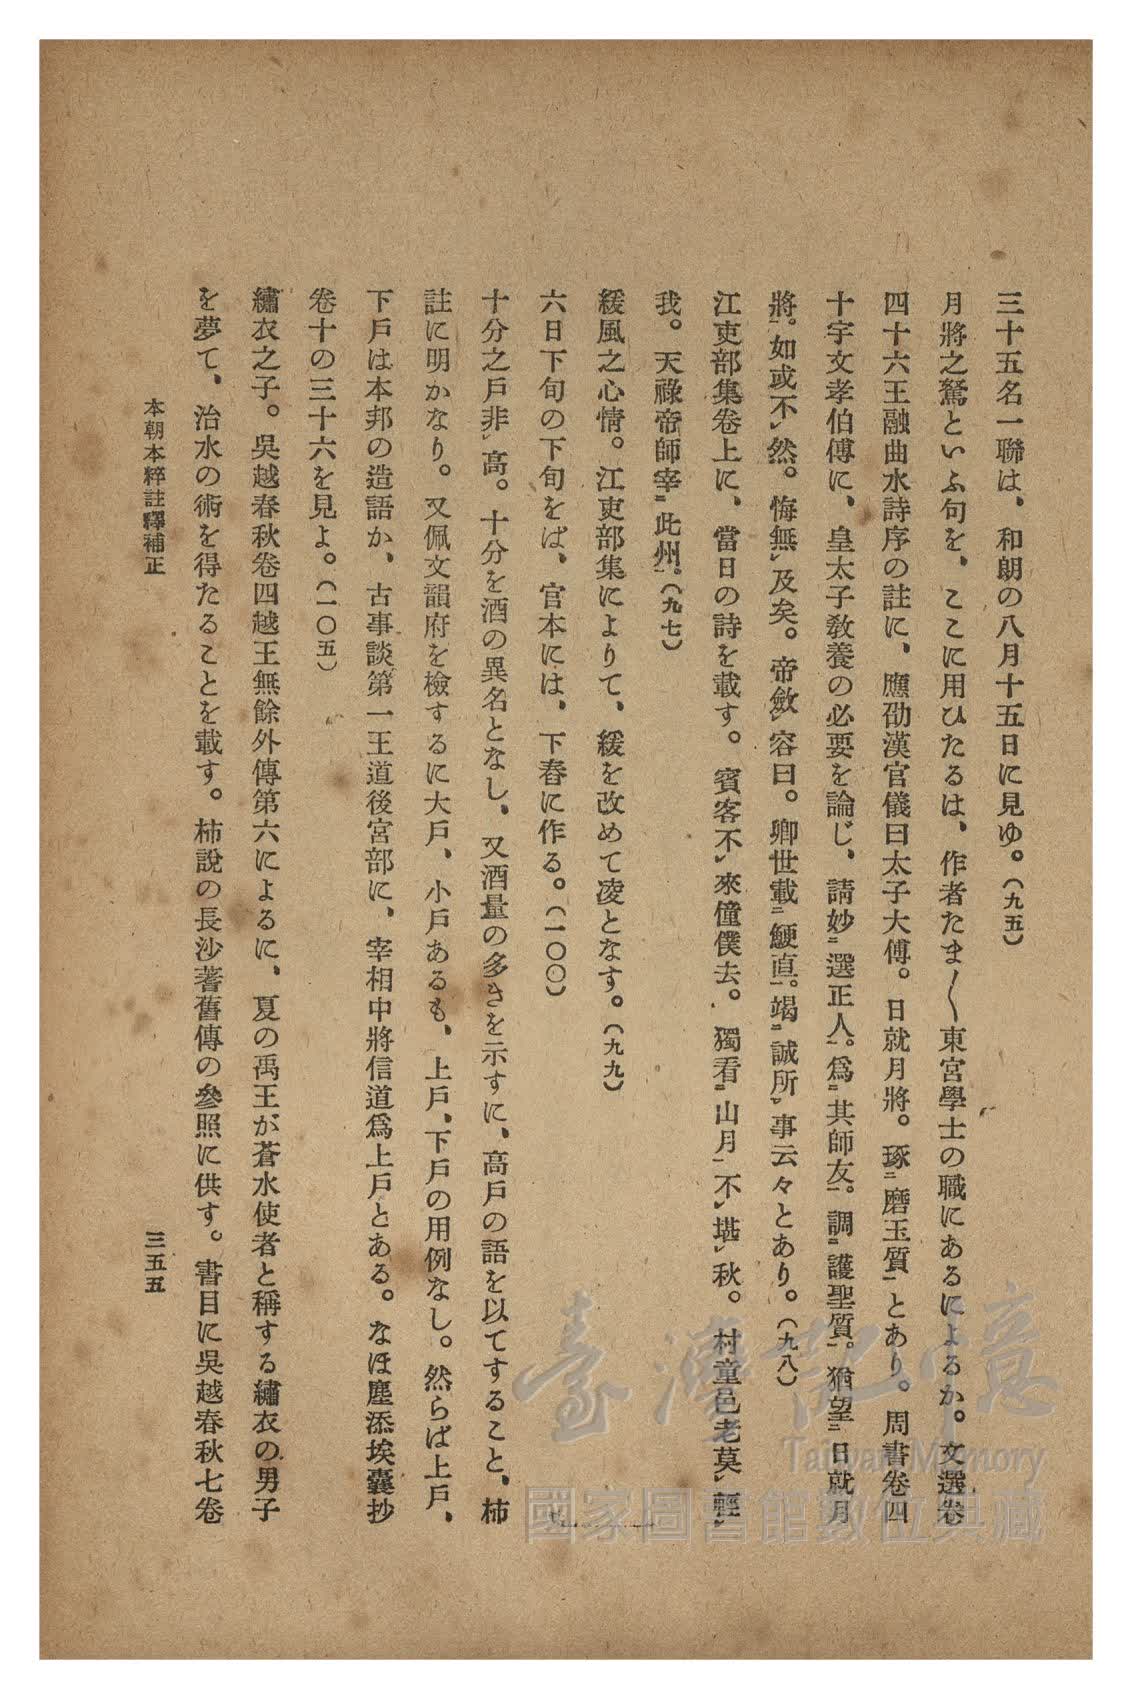 三十五名一聯は、和朗の八月十五日に見ゆ。(九五)
月將之騖といふ句を、ここに用ひたるは、作者たま〱東宮學士の職にあるによるか。文選卷
四十六王融曲水詩序の註に、應劭漢官儀曰太子大傅。日就月將。琢二磨玉質一とあり。周書卷四
十宇文孝伯傳に、皇太子敎養の必要を論じ、請妙二選正人一。爲二其師友一。調二護聖質一。猶望二日就月
將一。如或不レ然。悔無レ及矣。帝斂レ容曰。卿世載二鯁直一。竭レ誠所レ事云々とあり。(九八)
江吏部集卷上に、當日の詩を載す。賓客不レ來僮僕去。獨看二山月一不レ堪レ秋。村童邑老莫レ輕レ
我。天祿帝師宰二此州一。(九七)
緩風之心情。江吏部集によりて、緩を改めて凌となす。(九九)
六日下旬の下旬をば、官本には、下舂に作る。(一〇〇)
十分之戶非レ高。十分を酒の異名となし、又酒量の多きを示すに、高戶の語を以てすること、柿
註に明かなり。又佩文韻府を檢するに大戶、小戶あるも、上戶、下戶の用例なし。然らば上戶、
下戶は本邦の造語か、古事談第一王道後宮部に、宰相中將信道爲上戶とある。なほ塵添埃囊抄
卷十の三十六を見よ。(一〇五)
繡衣之子。吳越春秋卷四越王無餘外傳第六によるに、夏の禹王が蒼水使者と稱する繡衣の男子
を夢て、治水の術を得たることを載す。柿說の長沙蓍舊傳の參照に供す。書目に吳越春秋七卷
本朝本粹註釋補正
三五五
臺灣記憶
Taiwan Memory
國家圖書館數位典藏